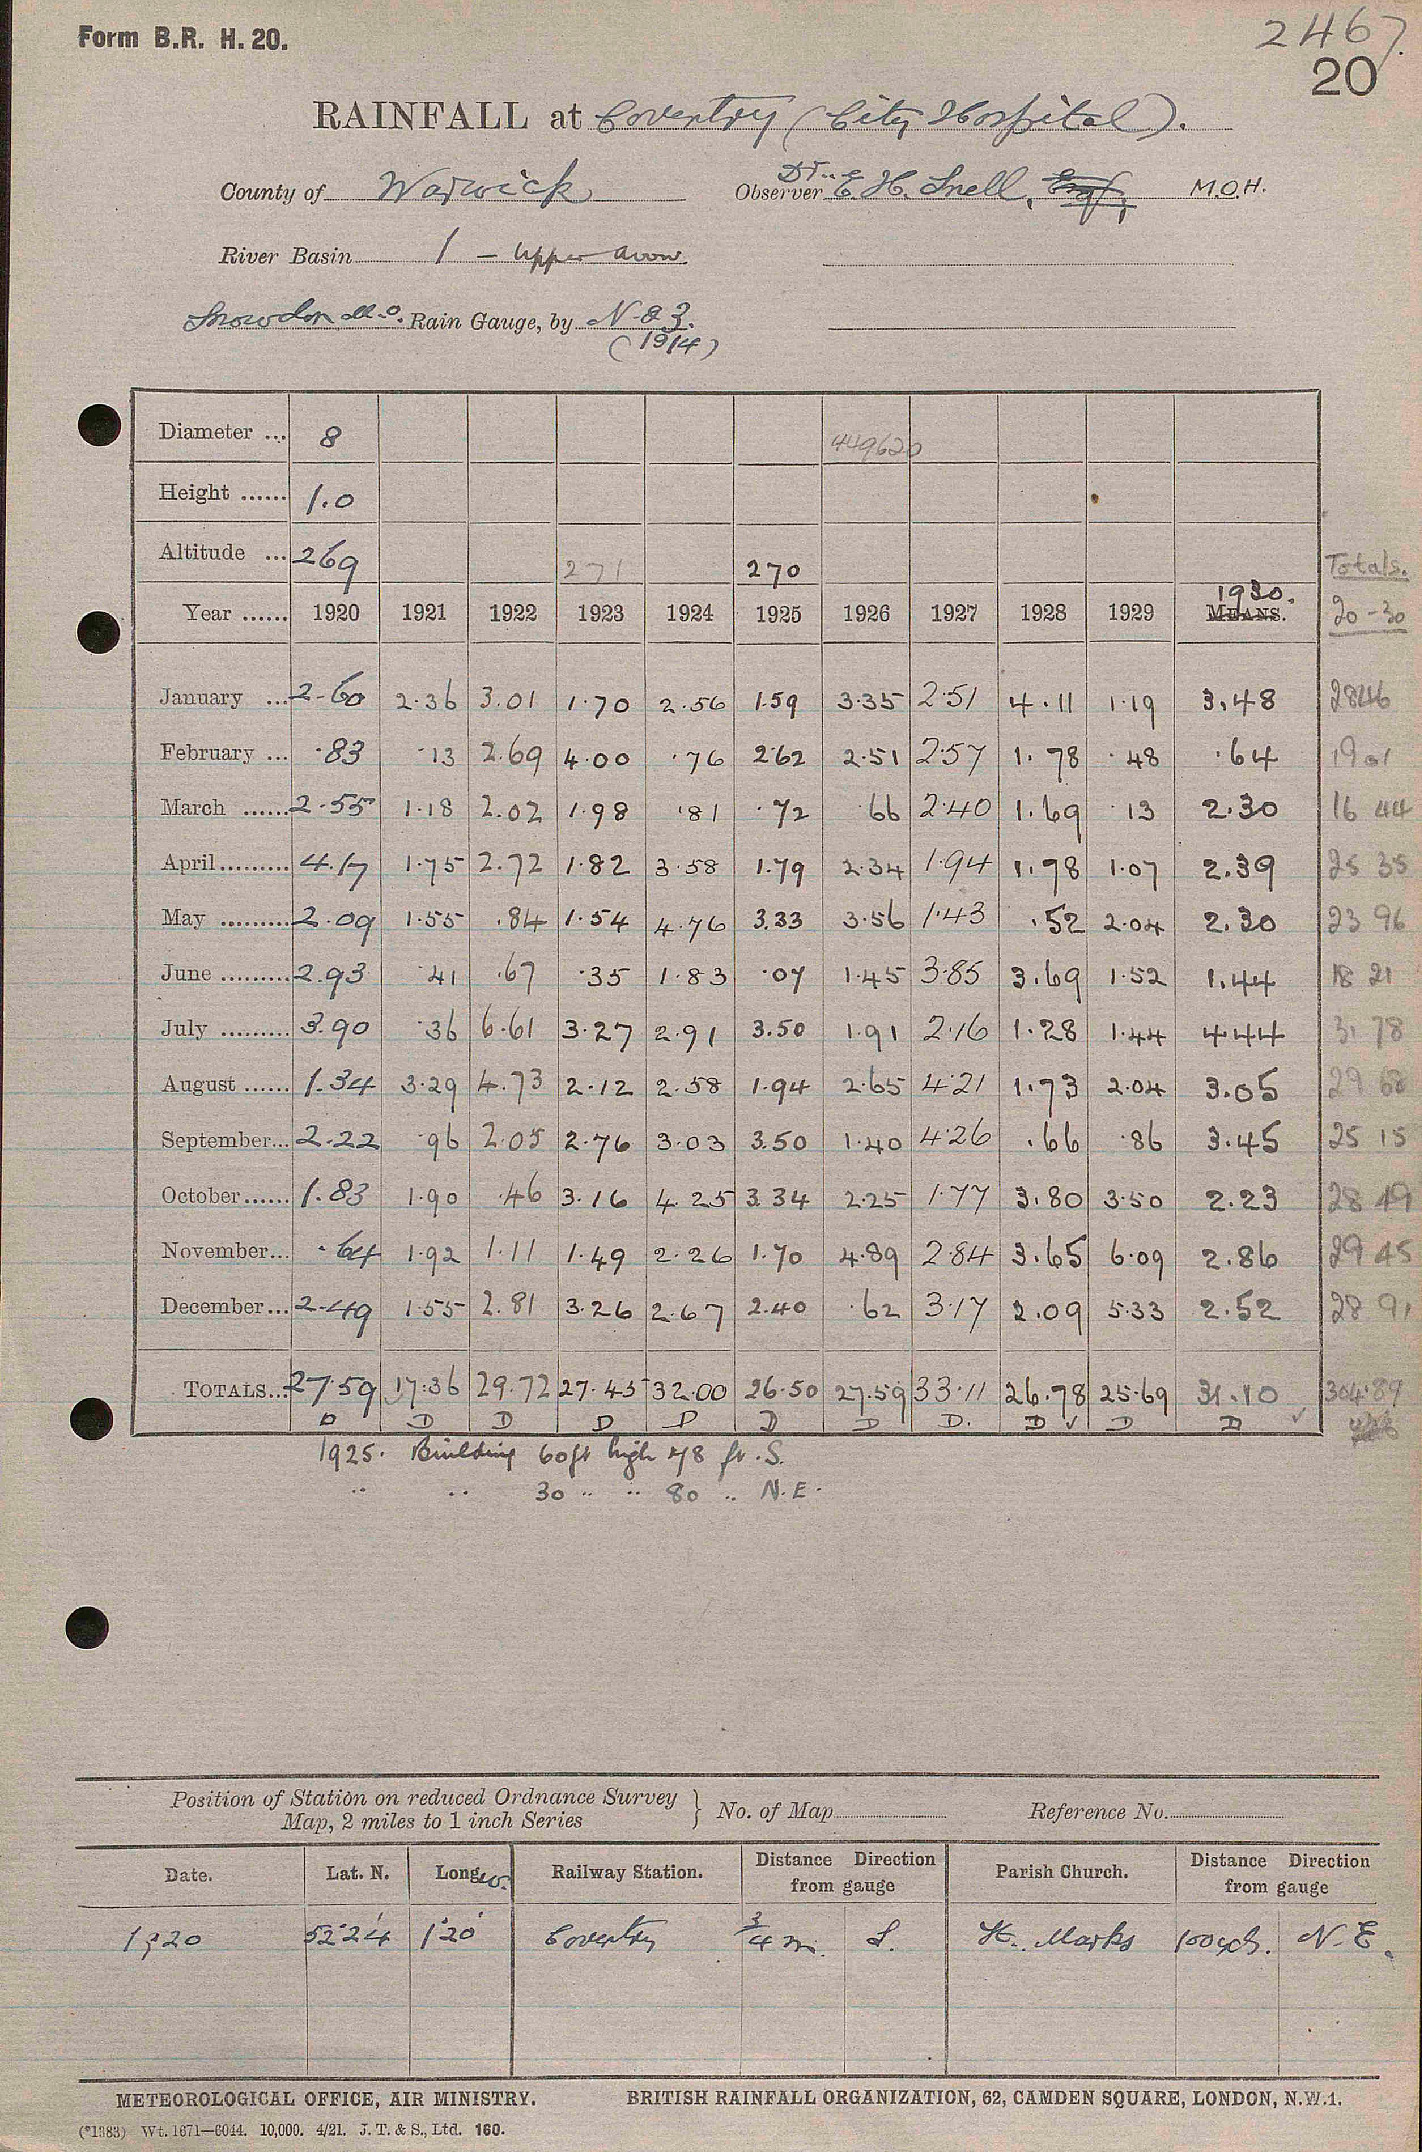 Form B.R. H. 20.
2467.
20
RAINFALL at Coventry (City Hospital).
County of Warwick
Observer Dr. E. H. Snell, M.O.H.
River Basin 1 - Upper Avon
Snowdon M.O. Rain Gauge, by N & Z.
(1914)
Diameter ... 8 449620
Height ...... 1.0
Altitude ... 269 271 270
Totals.
Year ...... 1920 1921 1922 1923 1924 1925 1926 1927 1928 1929 MEANS. 1930. 20-30
January ... 2.60 2.36 3.01 1.70 2.56 1.59 3.35 2.51 4.11 1.19 3.48 2846
February ... .83 .13 2.69 4.00 .76 2.62 2.51 2.57 1.78 .48 .64 19 01
March ...... 2.55 1.18 2.02 1.98 .81 .72 .66 2.40 1.69 .13 2.30 16 44
April......... 4.17 1.75 2.72 1.82 3.58 1.79 2.34 1.94 1.78 1.07 2.39 25 35
May ......... 2.09 1.55 .84 1.54 4.76 3.33 3.56 1.43 .52 2.04 2.30 23 96
June ......... 2.93 .41 .67 .35 1.83 .07 1.45 3.85 3.69 1.52 1.44 18 21
July ......... 3.90 .36 6.61 3.27 2.91 3.50 1.91 2.16 1.28 1.44 4.44 31 78
August ...... 1.34 3.29 4.73 2.12 2.58 1.94 2.65 4.21 1.73 2.04 3.05 29 68
September... 2.22 .96 2.05 2.76 3.03 3.50 1.40 4.26 .66 .86 3.45 25 15
October...... 1.83 1.90 .46 3.16 4.25 3.34 2.25 1.77 3.80 3.50 2.23 28 49
November... .64 1.92 1.11 1.49 2.26 1.70 4.89 2.84 3.65 6.09 2.86 29 45
December... 2.49 1.55 2.81 3.26 2.67 2.40 .62 3.17 2.09 5.33 2.52 28 91
TOTALS... 27.59 17.36 29.72 27.45 32.00 26.50 27.59 33.11 26.78 25.69 31.10 304.89
D D D D D D D D. D ✓ D D ✓
1925. Building 60ft high 48 ft. S.
.. .. 30 .. .. 80 .. N.E.
Position of Station on reduced Ordnance Survey
Map, 2 miles to 1 inch Series } No. of Map Reference No.
Date. Lat. N. Long W. Railway Station. Distance Direction from gauge Parish Church. Distance Direction from gauge
1920 52°24' 1°20' Coventry 3/4 m. S. St. Marks 100yds. N.E.
METEOROLOGICAL OFFICE, AIR MINISTRY. BRITISH RAINFALL ORGANIZATION, 62, CAMDEN SQUARE, LONDON, N.W.1.
(*1383) Wt. 1671—6044. 10,000. 4/21. J. T. & S., Ltd. 160.